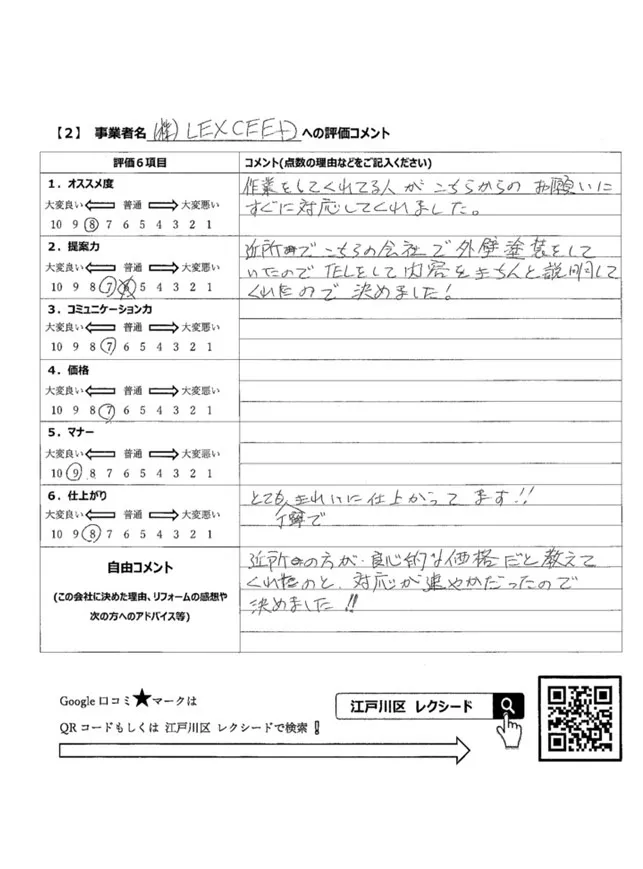 【２】 事業者名 (株)LEXCEED への評価コメント
評価６項目
コメント(点数の理由などをご記入ください)
１．オススメ度
大変良い 普通 大変悪い
10 9 8 7 6 5 4 3 2 1
作業をしてくれてる人がこちらからのお願いに
すぐに対応してくれました。
２．提案力
大変良い 普通 大変悪い
10 9 8 7 6 5 4 3 2 1
近所でこちらの会社で外壁塗装をして
いたのでTELをして内容をきちんと説明して
くれたので決めました！
３．コミュニケーション力
大変良い 普通 大変悪い
10 9 8 7 6 5 4 3 2 1
４．価格
大変良い 普通 大変悪い
10 9 8 7 6 5 4 3 2 1
５．マナー
大変良い 普通 大変悪い
10 9 8 7 6 5 4 3 2 1
６．仕上がり
大変良い 普通 大変悪い
10 9 8 7 6 5 4 3 2 1
とても きれいに仕上がってます!!
丁寧で
自由コメント
(この会社に決めた理由、リフォームの感想や
次の方へのアドバイス等)
近所の方が良心的な価格だと教えて
くれたのと、対応が速やかだったので
決めました!!
Google 口コミ★マークは
QR コードもしくは 江戸川区 レクシードで検索！
江戸川区 レクシード